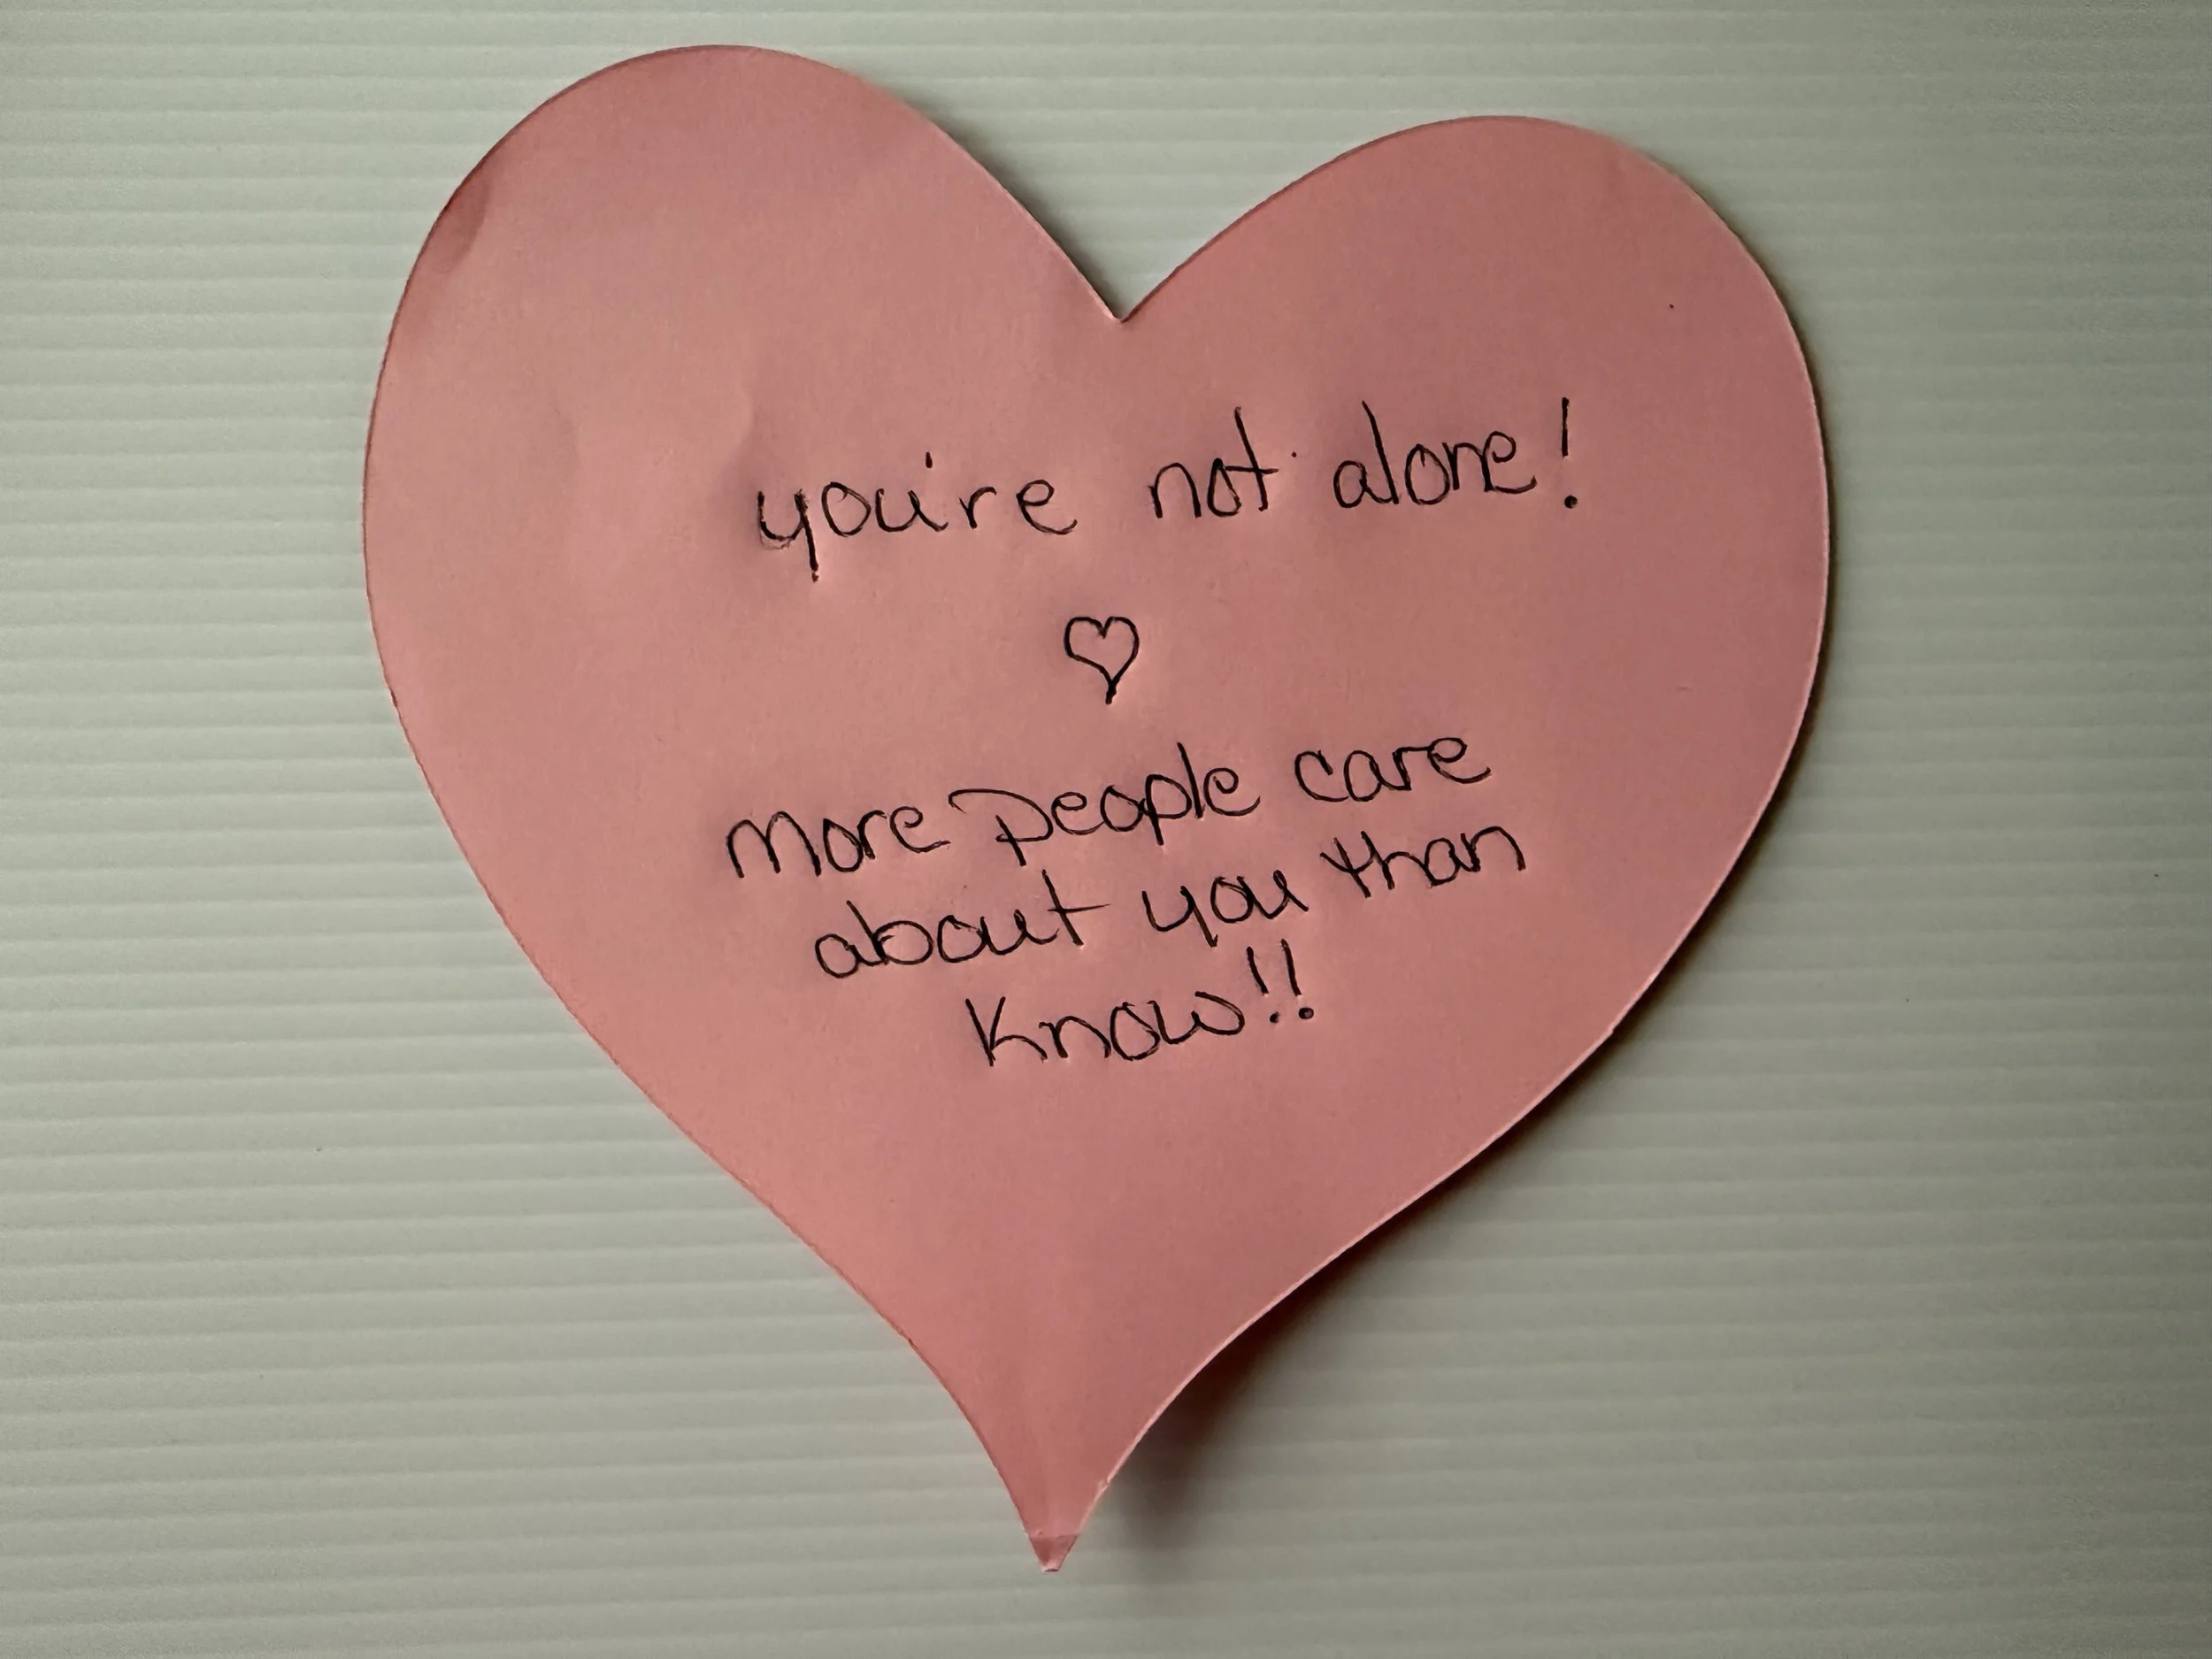 you're not alone!
♡
More people care
about you than
Know!!